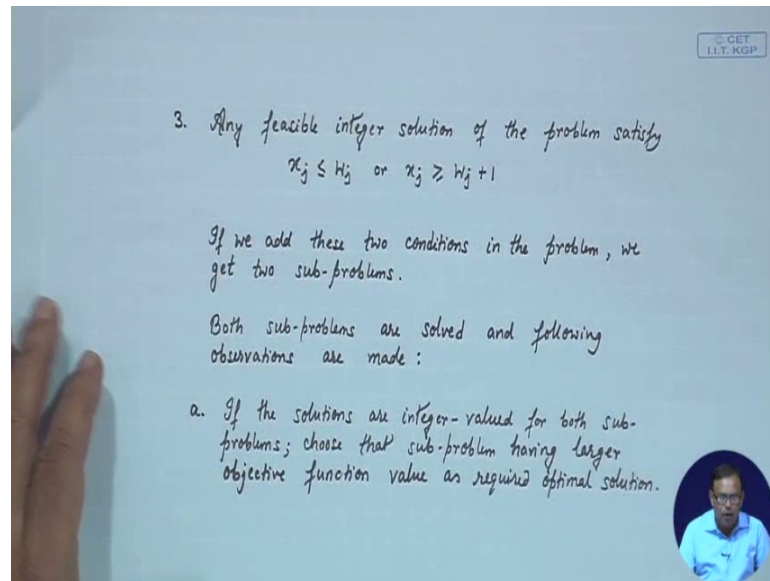 © CET
I.I.T. KGP
3. Any feasible integer solution of the problem satisfy
xj ≤ Wj or xj ≥ Wj + 1
If we add these two conditions in the problem, we
get two sub-problems.
Both sub-problems are solved and following
observations are made :
a. If the solutions are integer-valued for both sub-
problems; choose that sub-problem having larger
objective function value as required optimal solution.